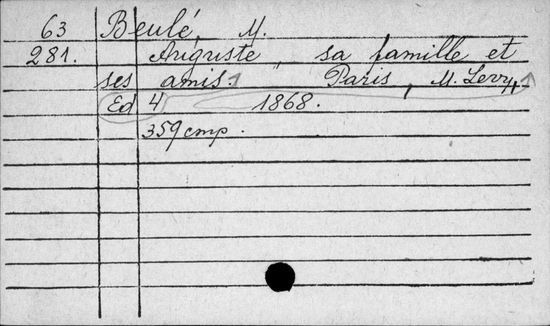 63 Beulé, M.
281. Auguste, sa famille et
ses amis. Paris, M. Levy,
Ed 4 1868.
359 cmp.